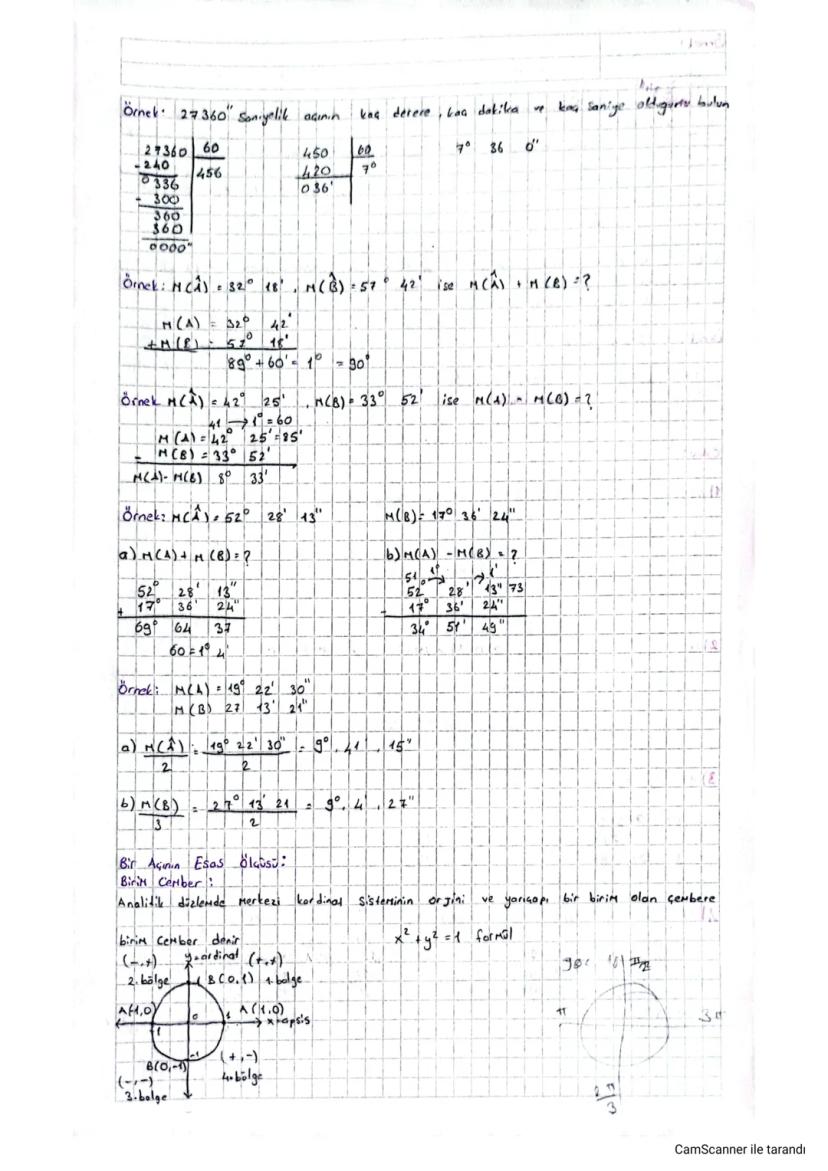 Örnek: 27360" Saniyelik açının kaç derece, kaç dakika ve kaç saniye olduğunu bulun
27360 60 450 60 7° 36 0"
-240 456 420 7°
0336 036'
- 300
360
360
0000"
Örnek: M(Â) = 32° 18', M(B̂) = 57° 42' ise M(Â) + M(B) = ?
M(A) = 32° 42'
+M(B) = 57° 18'
89° + 60' = 1° = 90°
Örnek M(Â) = 42° 25', M(B) = 33° 52' ise M(A) - M(B) = ?
41 → 1° = 60
M(A) = 42° 25' = 85'
- M(B) = 33° 52'
M(A) - M(B) 8° 33'
Örnek: M(Â) = 52° 28' 13" M(B) = 17° 36' 24"
a) M(A) + M(B) = ? b) M(A) - M(B) = ?
51 1° 1'
52° 28' 13" 52° 28' 13" 73
+ 17° 36' 24" - 17° 36' 24"
69° 64 37 34° 51' 49"
60 = 1° 4'
Örnek: M(A) = 19° 22' 30"
M(B) 27 13' 21"
a) M(Â)/2 = 19° 22' 30"/2 = 9°, 41', 15"
b) M(B)/3 = 27° 13' 21/2 = 9°, 4', 27"
Bir Açının Esas Ölçüsü:
Birim Cember:
Analitik düzlemde merkezi kordinat sisteminin orjini ve yarıçapı bir birim olan çembere
birim cember denir x² + y² = 1 formül
(-,+) y=ordinat (+,+)
2. bölge 1 B(0,1) 1. bolge
A(-1,0) 0 1 A(1,0)
1 x=apsis
-1
B(0,-1) (+,-)
(-,-) 4. bölge
3. bolge
π 3π
2π/3
CamScanner ile tarandı